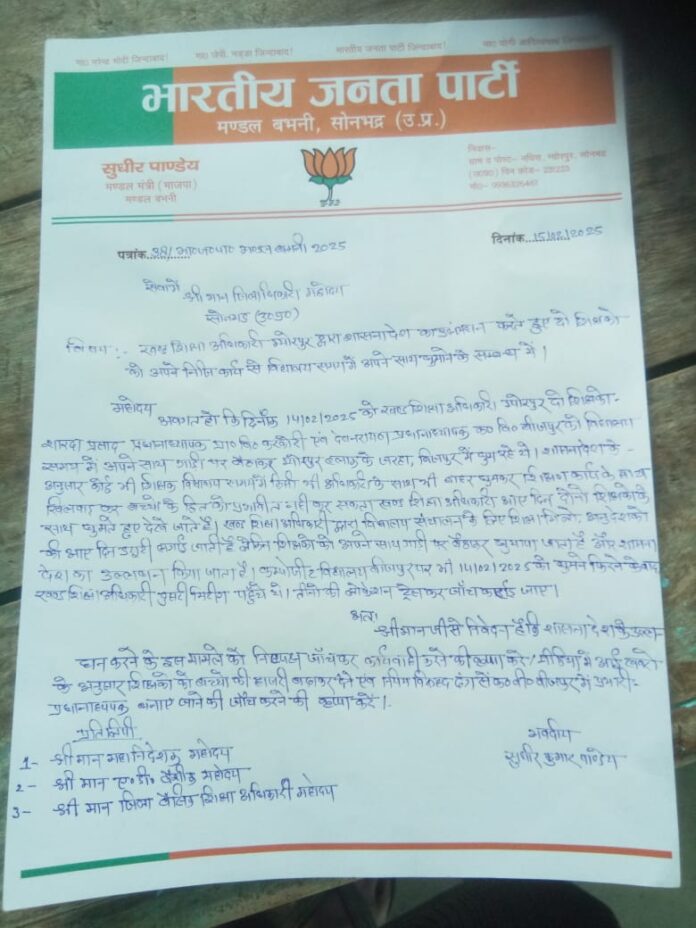 मा० नरेन्द्र मोदी जिन्दाबाद! मा० जेपी. नड्डा जिन्दाबाद! भारतीय जनता पार्टी जिन्दाबाद! मा० योगी आदित्यनाथ जिन्दाबाद!
भारतीय जनता पार्टी
मण्डल बभनी, सोनभद्र (उ.प्र.)
सुधीर पाण्डेय
मण्डल मंत्री (भाजपा)
मण्डल बभनी
निवास-
ग्राम व पोस्ट- म्योरपुर, सोनभद्र
(उ०प्र०) पिन कोड-
मो०-
पत्रांक 2025
दिनांक 15/02/2025
सेवा में
श्री मान जिलाधिकारी महोदय
सोनभद्र (उ०प्र०)
विषय :- खण्ड शिक्षा अधिकारी म्योरपुर द्वारा शासनादेश का उलंघन करते हुए दो शिक्षको
को अपने निजि कार्य से विद्यालय समय में अपने साथ घुमाने के सम्बन्ध में।
महोदय
अवगत हो कि दिनाँक 14/02/2025 को खण्ड शिक्षा अधिकारी म्योरपुर दो शिक्षको-
शारदा प्रसाद प्रधानाध्यापक प्रा० वि० एवं प्रधानाध्यापक क० वि० बीजपुर को विद्यालय
समय में अपने साथ गाडी पर बैठाकर म्योरपुर ब्लाक के जरहा, बिजपुर में घुम रहे थे। शासनादेश के-
अनुसार कोई भी शिक्षक विद्यालय समय में किसी भी अधिकारी के साथ भी बाहर घुमकर शिक्षण कार्य के साथ
खिलवाड कर बच्चो के हित को प्रभावित नही कर सकता खण्ड शिक्षा अधिकारी आए दिन दोनो शिक्षको के
साथ घुमते हुए देखे जाते है। खण्ड शिक्षा अधिकारी द्वारा विद्यालय संचालन के लिए शिक्षा मित्रो, अनुदेशको
की आए दिन ड्युटी लगाई जाती है लेकिन शिक्षको को अपने साथ गाडी पर बैठाकर घुमाया जाता है और शासना
देश का उल्लंघन किया जाता है। कम्पोजीट विद्यालय बीजपुर पर भी 14/02/2025 को घुमने फिरने के बाद
खण्ड शिक्षा अधिकारी दुसरी मिटींग पहुँचे थे। तीनो की लोकेशन ट्रेस कर जाँच कराई जाए।
अतः
श्रीमान जी से निवेदन है कि शासनादेश के उल्ल-
घन करने के इस मामले को निष्पक्ष जाँच कर कार्यवाही करने की कृपा करे। मीडिया में आई खबरो
के अनुसार शिक्षको को बच्चो की हाजरी बढाकर देने एवं नियम विरुद्ध ढंग से क० वि० बीजपुर में प्रभारी-
प्रधानाध्यापक बनाए जाने की जाँच करने की कृपा करें।
प्रतिलिपी
1- श्री मान महानिदेशक महोदय
2- श्री मान ए० डी० बेसिक महोदय
3- श्री मान जिला बेसिक शिक्षा अधिकारी महोदय
भवदीय
सुधीर कुमार पाण्डेय